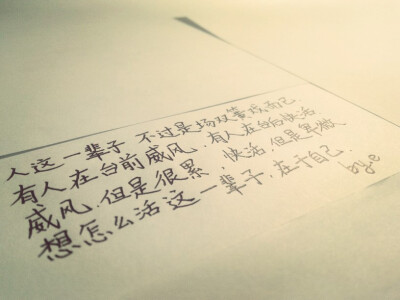 人这一辈子 不过是场双簧戏而已
有人在台前威风,有人在台后快活
威风,但是很累,快活,但是卑微.
想怎么活这一辈子,在于自己.
by.e